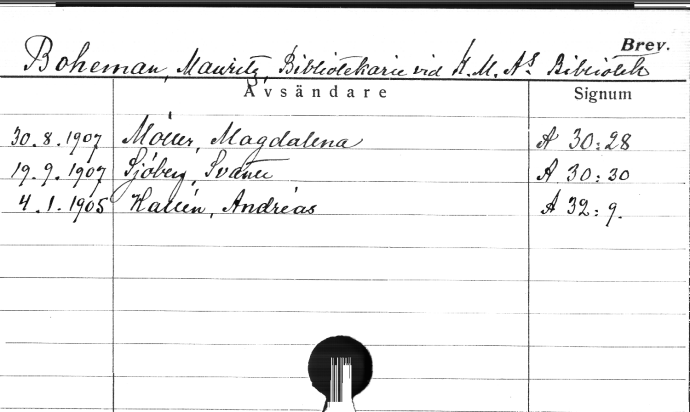 Brev.
Boheman, Mauritz, Bibliotekarie vid K. M. A:s Bibliotek
Avsändare Signum
30.8.1907 Möller, Magdalena A 30:28
19.9.1907 Sjöberg, Svante A 30:30
4.1.1905 Hallén, Andréas A 32:9.